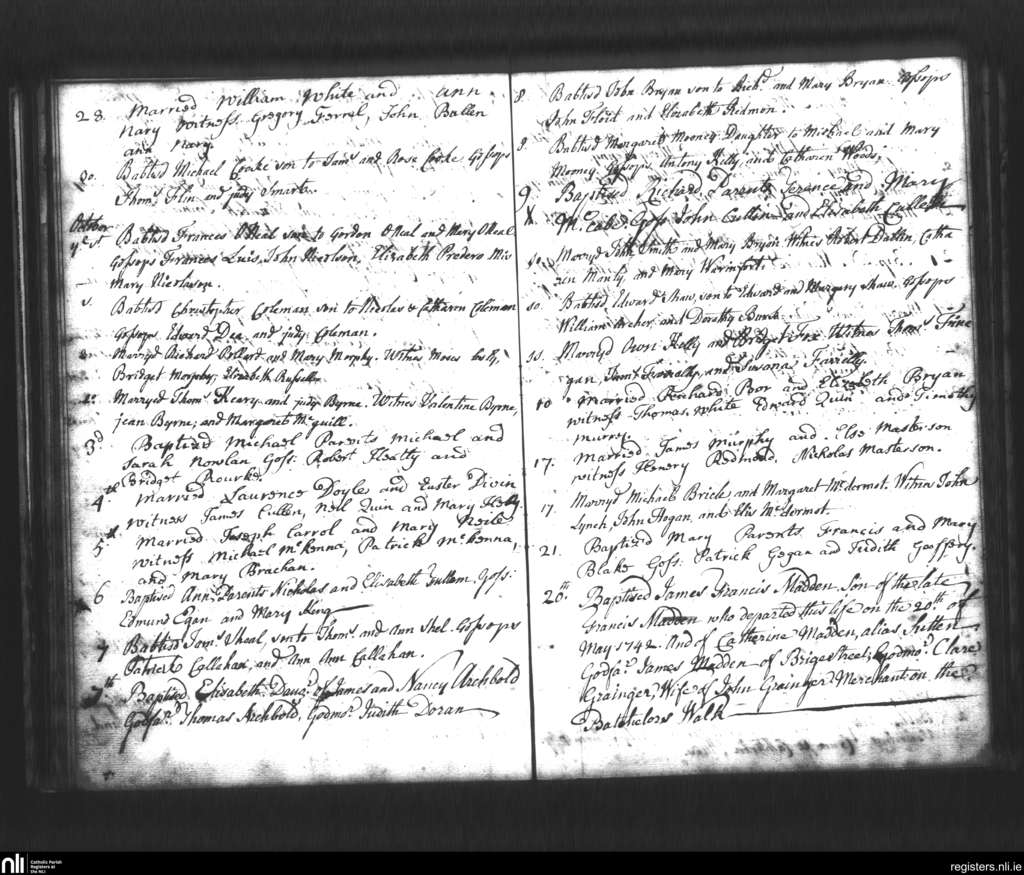 28. Married William White and Ann
Nary witness. Gregory Ferrel, John Bullen
and Nary
30. Babtisd Michael Cooke son to Jams and Rose Cooke Gossops
Thoms Flin and judy Smarte
October
ye 1st Babtisd Frances ONeal son to Gordon ONeal and Mary ONeal
Gossops Frances Luis, John Nicolson, Elizabeth Mis
Mary Nicolson.
Babtisd Christopher Coleman son to Nicolas & Catharen Coleman
Gossops Edward Dee and judy Coleman.
Marryd Richard Pollard and Mary Morphy. Witnes Moses
Bridget Morphy, Elizabeth Russell
2. Marryd Thoms Keary and judy Byrne. Witnes Valentine Byrne,
jean Byrne, and Margaret Mcquill.
3d Baptized Michael Parents Michael and
Sarah Nowlan Goss: Robert Heatty and
Bridget Rourke.
4th Married Laurence Doyle and Easter Divin
witness James Cullen, Neil Quin and Mary
5th. Married Joseph Carrol and Mary Neile
witness Michael McKenna, Patrick McKenna,
and Mary Brachan.
6 Baptised Ann, Parents Nicholas and Elisabeth Fullam, Goss:
Edmund Egan and Mary King
7 Babtisd Jams Sheal, son to Thoms and Ann Shel. Gossops
Patrick Callahan, and Ann Ann Callahan.
7th Baptised Elisabeth Daugr. of James and Nancy Archbold
Godfar. Thomas Archbold, Godmor. Judith Doran
8. Babtisd John Bryan son to Richd and Mary Bryan Gossops
John Flood and Elizabeth Redmon.
9. Babtisd Margaret Mooney Daughter to Michael and Mary
Mooney Gossops Antony Kelly and Catharen Woods,
9 Baptized Richard, Parents Terence and Mary
McCabe. Goss John Cullin and Elisabeth Cullen
10. Marryd John Smith and Mary Bryan Witnes Robert Dalten, Catha
ren Manly, and Mary
10. Babtisd Edward Shaw, son to Edward and Margery Shaw. Gossops
William Archer, and Dorothy Burck.
11. Marryd Owen Kelly and Bridget Fox Witnes Thoms
gan, Farrelly, and Susana Farrelly.
10 Married Richard Poor and Elizabeth Bryan
witness Thomas, White Edward Quin and Timothy
Murrey.
17. Married James Murphy and Else Masterson
witness Henery Redmond, Nickolas Masterson.
17. Marryd Michael Brick, and Margaret McDermot. Witnes John
Lynch, John Hogan, and Elis McDermot.
21. Baptized Mary Parents Francis and Mary
Blake Goss. Patrick Gegan ad Judith Geoffery.
20th. Baptised James Francis Madden Son of the late
Francis Madden who departed this life on the 20th of
May 1742. And of Catherine Madden, alias Shetten
Godfar. James Madden of Brigestreet, Godmor. Clare
Grainger, Wife of John Grainger Merchant on the
Batchelors Walk
nli
Catholic Parish
Registers at
the NLI
registers.nli.ie